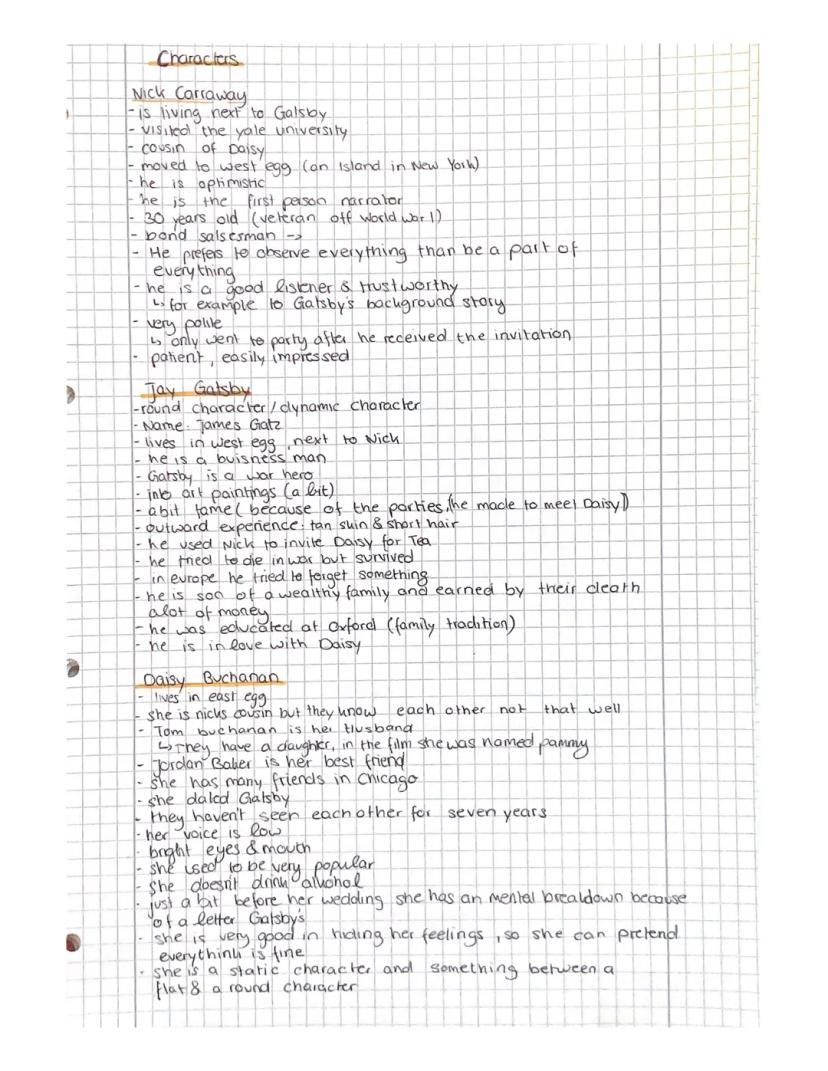 Characters
Nick Carraway
- is living next to Gatsby
- visited the yale university
- cousin of Daisy
- moved to west egg (an Island in New York)
- he is optimistic
- he is the first person narrator
- 30 years old (veteran off world war 1)
- bond salsesman ->
- He prefers to observe everything than be a part of
everything
- he is a good listener & trustworthy
↳ for example to Gatsby's background story
- very polite
↳ only went to party after he received the invitation
- patient, easily impressed
Jay Gatsby
- round character / dynamic character
- Name: James Gatz
- lives in west egg, next to Nick
- he is a buisness man
- Gatsby is a war hero
- into art paintings (a bit)
- abit fame ( because of the parties, he made to meet Daisy))
- outward experience: tan skin & short hair
- he used Nick to invite Daisy for Tea
- he tried to die in war but survived
- in europe he tried to forget something
- he is son of a wealthy family and earned by their death
alot of money
- he was educated at Oxford (family tradition)
- he is in love with Daisy
Daisy Buchanan
- lives in east egg
- she is nicks cousin but they know each other not that well
- Tom buchanan is her Husband
↳ They have a daughter, in the film she was named pammy
- Jordan Baker is her best friend
- she has many friends in Chicago
- she dated Gatsby
- they haven't seen each other for seven years
- her voice is low
- bright eyes & mouth
- she used to be very popular
- she doesn't drink alkohol
- just a bit before her wedding she has an mental breakdown because
of a letter Gatsby's
- she is very good in hiding her feelings, so she can pretend
everythink is fine
- she is a static character and something between a
flat & a round character